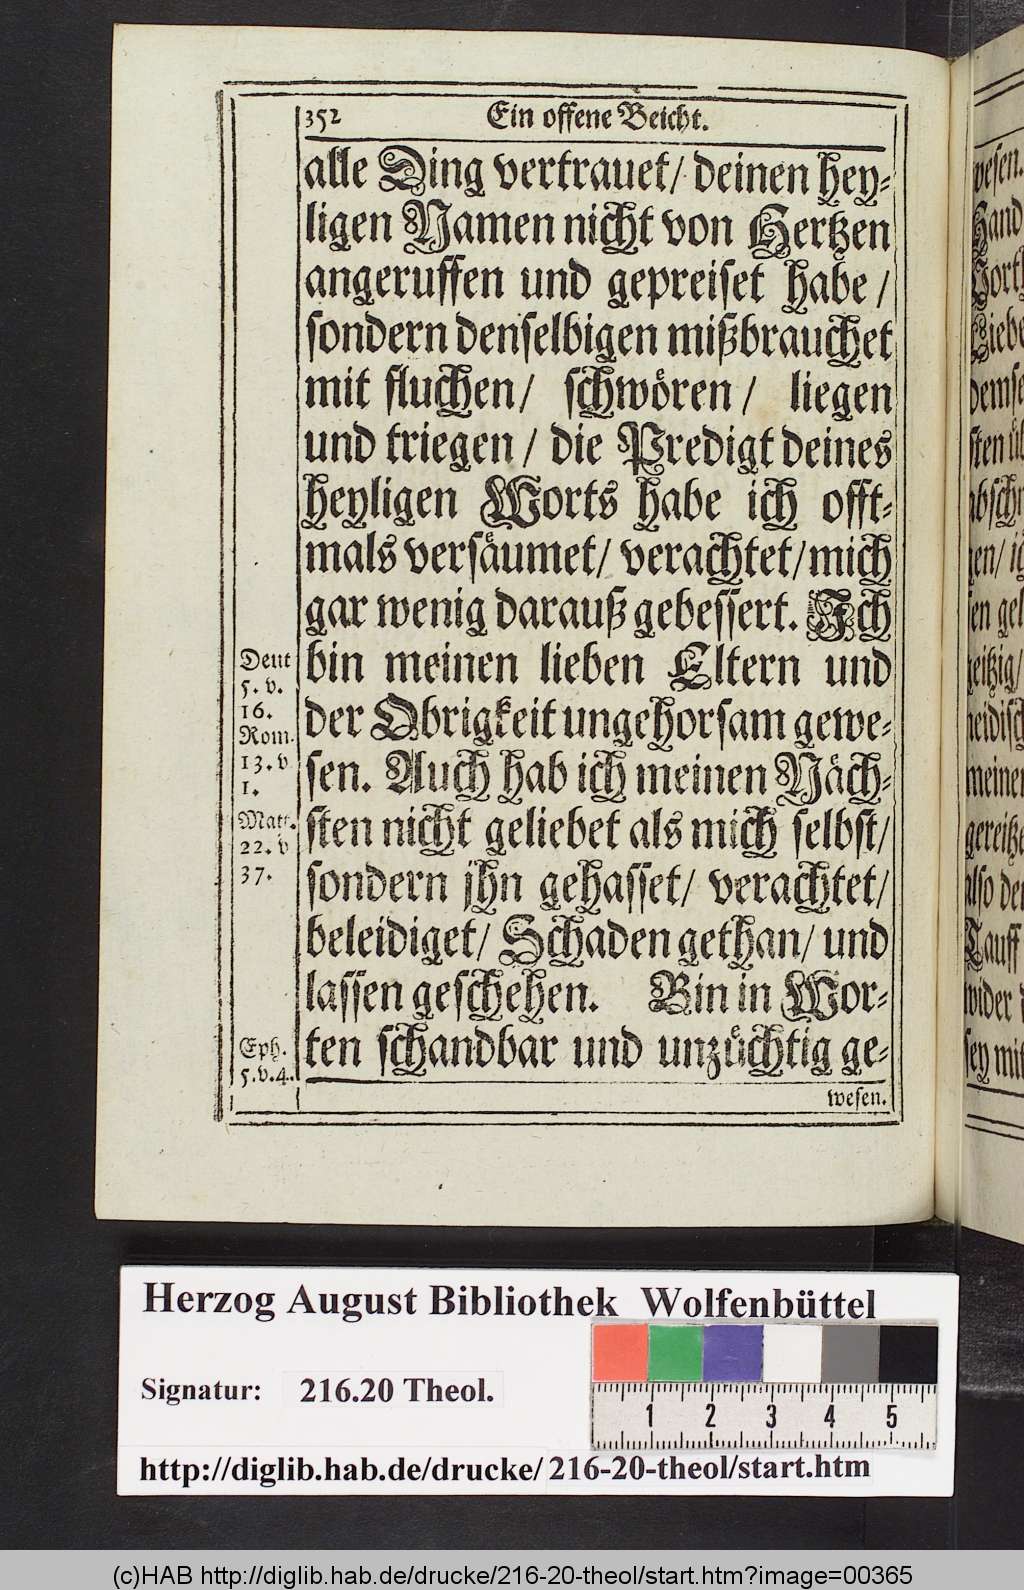 352 Ein offene Beicht.
alle Ding vertrauet/ deinen hey-
ligen Namen nicht von Hertzen
angeruffen und gepreiset habe /
sondern denselbigen mißbrauchet
mit fluchen/ schwören / liegen
und triegen / die Predigt deines
heyligen Worts habe ich offt-
mals versäumet/ verachtet/ mich
gar wenig darauß gebessert. Ich
bin meinen lieben Eltern und
der Obrigkeit ungehorsam gewe-
sen. Auch hab ich meinen Näch-
sten nicht geliebet als mich selbst/
sondern jhn gehasset/ verachtet/
beleidiget/ Schaden gethan/ und
lassen geschehen. Bin in Wor-
ten schandbar und unzüchtig ge-
wesen.
Deut
5. v.
16.
Rom.
13. v
1.
Matt.
22. v
37.
Eph.
5. v. 4.
wesen.
Hand
Liebe
demse
sten
geitzig/
neidisch
meinen
gereitze
also
Tauff
wider
sey mit
Herzog August Bibliothek Wolfenbüttel
Signatur: 216.20 Theol.
1 2 3 4 5
http://diglib.hab.de/drucke/216-20-theol/start.htm
(c)HAB http://diglib.hab.de/drucke/216-20-theol/start.htm?image=00365